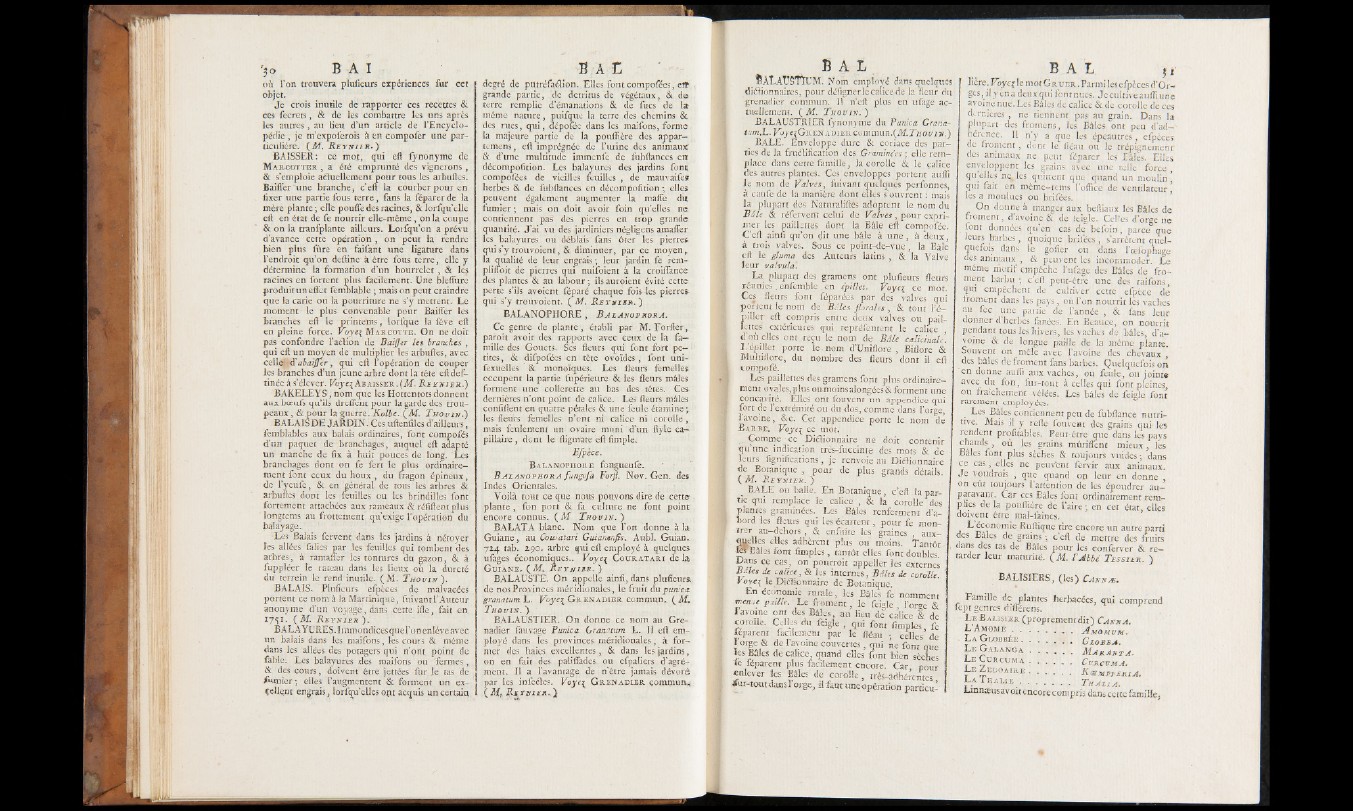 30 B A I
où l'on trouvera plusieurs expériences sur cet
objet.
Je crois inutile de rapporter ces recettes &
ces secrets, & de les combattre les uns après
les autres, au lieu d'un article de l'Encyclo-
pédie, je m'exposerois à en composer une par-
ticulière. ( M. REYNIER. )
BAISSER: ce mot, qui est synonyme de
MARCOTTER, a été emprunté des vignerons,
& s'emploie actuellement pour tous les arbustes.
Baisser une branche, c'est la courber pour en
fixer une partie sous terre, sans la séparer de la
mère plante; elle pousse des racines, & lorsqu'elle
est en état de se nourrir elle-même, on la coupe
& on la transplante ailleurs. Lorsqu'on a prévu
d'avance cette opération, on peut la rendre
bien plus sûre en faisant une ligature dans
l'endroit qu'on destine à être sous terre, elle y
détermine la formation d'un bourrelet, & les
racines en sortent plus facilement. Une blessure
produit un effet semblable; mais on peut craindre
que la carie ou la pourriture ne s'y mettent. Le
moment le plus convenable pour Baisser les
branches est le printems, lorsque la sève est
en pleine force. Voyez MARCOTTE. On ne doit
pas confondre l'action de Baisser les branches,
qui est un moyen de multiplier les arbustes, avec
celle d'abaisser, qui est l'opération de couper
les branches d'un jeune arbre dont la tête est des-
tinée à s'élever. Voyez ABAISSER. (M. REYNIER.)
BAKELEYS, nom que les Hottentots donnent
aux bœufs qu'ils dressent pour la garde des trou-
peaux, & pour la guerre. Kolbe. (M. THOUIN.)
BALAIS DE JARDIN. Ces ustensiles d'ailleurs,
semblables aux balais ordinaires, sont composés
d'un paquet de branchages, auquel est adapté
un manche de six à huit pouces de long. Les
branchages dont on se sert le plus ordinaire-
ment sont ceux du houx, du fragon épineux,
de l'yeuse, & en général de tous les arbres &
arbustes dont les feuilles ou les brindilles sont
fortement attachées aux rameaux & résistent plus
longtems au frottement qu'exige l'opération du
balayage.
Les Balais servent dans les jardins à nétoyer
les allées salies par les feuilles qui tombent des
arbres, à ramasser les tontures du gazon, & à
suppléer le rateau dans les lieux où la dureté
du terrein le rend inutile. ( M. THOUIN ).
BALAIS. Plusieurs espèces de malvacées
portent ce nom à la Martinique, suivant l'Auteur
anonyme d'un voyage, dans cette isle, fait en
1751. ( M. REYNIER ).
BALAYURES. Immondices que l'on enlève avec
un balais dans les maisons, les cours & même
dans les allées des potagers qui n'ont point de
sable. Les balayures des maisons ou fermes,
& des cours, doivent être jettées sur le tas de
fumier; elles l'augmentent & forment un ex-
cellent engrais, lorsqu'elles ont acquis un certain
B A L
degré de putréfaction. Elles sont composées, en
grande partie, de detritus de végétaux, & de
terre remplie d'émanations & de sucs de la
même nature, puisque la terre des chemins &
des rues, qui, déposée dans les maisons, forme
la majeure partie de la poussière des appar-
temens, est imprégnée de l'urine des animaux
& d'une multitude immense de substances en
décomposition. Les balayures des jardins sont
composées de vieilles feuilles, de mauvaises
herbes & de substances en décomposition; elles
peuvent également augmenter la masse du
fumier; mais on doit avoir soin qu'elles ne
contiennent pas des pierres en trop grande
quantité. J'ai vu des jardiniers négligens amasser
les balayures ou déblais sans ôter les pierres
qui s'y trouvoient, & diminuer, par ce moyen,
la qualité de leur engrais; leur jardin se rem-
plissoit de pierres qui nuisoient à la croissance
des plantes & au labour; ils auroient évité cette
perte s'ils avoient séparé chaque fois les pierres
qui s'y trouvoient. ( M. REYNIER. )
BALANOPHORE, BALANOPHORA.
Ce genre de plante, établi par M. Forster,
paroit avoir des rapports avec ceux de la fa-
mille des Gouets. Ses fleurs qui sont fort pe-
tites, & disposées en tête ovoïdes, sont uni-
sexuelles & monoïques. Les fleurs femelles
occupent la partie supérieure & les fleurs mâles
forment une collerette au bas des têtes. Ces
dernières n'ont point de calice. Les fleurs mâles
consistent en quatre pétales & une seule étamine;
les fleurs femelles n'ont ni calice ni corolle,
mais seulement un ovaire muni d'un style ca-
pillaire, dont le stigmate est simple.
Espèce.
BALANOPHORE fongueuse.
BALANOPHORA fungosa Forst. Nov. Gen. des
Indes Orientales.
Voilà tout ce que nous pouvons dire de cette
plante, son port & sa culture ne sont point
encore connus. ( M THOUIN. )
BALATA blanc. Nom que l'on donne à la
Guiane, au Couratari Guianensis. Aubl. Guian.
724 tab. 290. arbre qui est employé à quelques
usages économiques. Voyez COURATARI de la
GUIANE. ( M. REYNIER. )
BALAUSTE. On appelle ainsi, dans plusieurs
de nos Provinces méridionales, le fruit du punica
granatum L. Voyez GRENADIER commun. ( M.
THOUIN. )
BALAUSTIER. On donne ce nom au Gre-
nadier sauvage Punica Granatum L. Il est em-
ployé dans les provinces méridionales, à for-
mer des haies excellentes, & dans les jardins,
on en fait des palissades ou espaliers d'agré-
ment. Il a l'avantage de n'être jamais dévoré
par les insectes. Voyez GRENADIER commun.
( M, REYNIER. )
B A L
BALAUSTIUM. Nom employé dans quelques
dictionnaires, pour désigner le calice de la fleur du
grenadier commun. Il n'est plus en usage ac-
tuellement. ( M. THOUIN. )
BALAUSTRIER synonyme du Punica Grana-
tum, L. Voyez GRENADIER commun. (M. THOUIN.)
BALE. Enveloppe dure & coriace des par-
ties de la fructification des Graminées; elle rem-
place dans cette famille, la corolle & le calice
des autres plantes. Ces enveloppes portent aussi
le nom de Valves, suivant quelques personnes,
à cause de la manière dont elles s'ouvrent: mais
la plupart des Naturalistes adoptent le nom du
Bâle & réservent celui de Valves, pour expri-
mer les paillettes dont la Bâle est composée.
C'est ainsi qu'on dit une bâle à une, à deux,
à trois valves. Sous ce point-de-vue, la Bâle
est le gluma des Auteurs latins, & la Valve
leur valvula.
La plupart des gramens ont plusieurs fleurs
réunies, ensemble en épillet. Voyez ce mot.
Ces fleurs sont séparées par des valves qui
portent le nom de Bâles florales, & tout l'é-
pillet est compris entre deux valves ou pail-
lettes extérieures qui représentent le calice,
d'où elles ont reçu le nom de Bâle calicinale.
L'épillet porte le nom d'Uniflore, Biflore &
Multiflore, du nombre des fleurs dont il est
composé.
Les paillettes des gramens sont plus ordinaire-
ment ovales, plus ou moins alongées & forment une
concavité. Elles ont souvent un appendice qui
sort de l'extrémité ou du dos, comme dans l'orge,
l'avoine, &c. Cet appendice porte le nom de
BARBE. Voyez ce mot.
Comme ce Dictionnaire ne doit contenir
qu'une indication très-succinte des mots & de
leurs significations, je renvoie au Dictionnaire
de Botanique, pour de plus grands détails.
( M. REYNIER. )
BALE ou balle. En Botanique, c'est la par-
tie qui remplace le calice, & la corolle des
plantes graminées. Les Bâles renferment d'a-
bord les fleurs qui les écartent, pour se mon-
trer au-dehors, & ensuite les graines, aux-
quelles elles adhèrent plus ou moins. Tantôt
les Bâles sont simples, tantôt elles sont doubles.
Dans ce cas, on pourroit appeller les externes
Bâles de calice, & les internes, Bâles de corolle.
Voyez le Dictionnaire de Botanique.
En économie rurale, les Bâles se nomment
menue paille. Le froment, le seigle, l'orge &
l'avoine ont des Bâles, au lieu de calice & de
corolle. Celles du seigle, qui sont simples, se
séparent facilement par le fléau; celles de
l'orge & de l'avoine couvertes, qui ne sont que
les Bâles de calice, quand elles sont bien sèches
se séparent plus facilement encore. Car, pour
enlever les Bâles de corolle, très-adhérentes,
sur-tout dans l'orge, il faut une opération particu-
B A L 31
lière. Voyez le mot GRUER. Parmi les espèces d'Or-
ges, il y en a deux qui sont nues. Je cultive aussi une
avoine nue. Les Bâles de calice & de corolle de ces
dernières, ne tiennent pas au grain. Dans la
plupart des fromens, les Bâles ont peu d'ad-
hérence. Il n'y a que les épeautres, espèces
de froment, dont le fléau ou le trépignement
des animaux ne peut séparer les Bâles. Elles
enveloppent les grains avec une telle force,
qu'elles ne les quittent que quand un moulin,
qui fait en même-tems l'office de ventilateur,
les a moulues ou brisées.
On donne à manger aux bestiaux les Bâles de
froment, d'avoine & de seigle. Celles d'orge ne
sont données qu'en cas de besoin, parce que
leurs barbes, quoique brisées, s'arrêtent quel-
quefois dans le gosier ou dans l'œsophage
des animaux, & peuvent les incommoder. Le
même motif empêche l'usage des Bâles de fro-
ment barbu; c'est peut-être une des raisons,
qui empêchent de cultiver cette espèce de
froment dans les pays, où l'on nourrit les vaches
au sec une partie de l'année, & sans leur
donner d'herbes fanées. En Beauce, on nourrit
pendant tous les hivers, les vaches de bâles, d'a-
voine & de longue paille de la même plante.
Souvent on mêle avec l'avoine des chevaux,
des bâles de froment sans barbes. Quelquefois on
en donne aussi aux vaches, ou seule, ou jointe
avec du son, sur-tout à celles qui sont pleines,
ou fraîchement vêlées. Les bâles de seigle sont
rarement employées.
Les Bâles contiennent peu de substance nutri-
tive. Mais il y reste souvent des grains qui les
rendent profitables. Peut-être que dans les pays
chauds, où les grains mûrissent mieux, les
Bâles sont plus sèches & toujours vuides; dans
ce cas, elles ne peuvent servir aux animaux.
Je voudrois, que quand on leur en donne,
on eût toujours l'attention de les époudrer au-
paravant. Car ces Bâles sont ordinairement rem-
plies de la poussière de l'aire; en cet état, elles
doivent être mal-saines.
L'économie Rustique tire encore un autre parti
des Bâles de grains; c'est de mettre des fruits
dans des tas de Bâles pour les conserver & re-
tarder leur maturité. ( M. l'Abbé TESSIER. )
BALISIERS, (les) CANNÆ.
Famille de plantes herbacées, qui comprend
sept genres différens.
LE BALISIER (proprement dit) CANNA.
L'AMOME . . . . . . . . . AMOMUM.
LA GLOBBÉE . . . . . . GLOBBA.
LE GALANGA . . . . . . MARANTA.
LE CURCUMA . . . . . . CURCUMA.
LE ZÉDOAIRE . . . . . . KÆMPFERIA.
LA THALIE . . . . . . . THALIA.
Linnæus avoit encore compris dans cette famille,